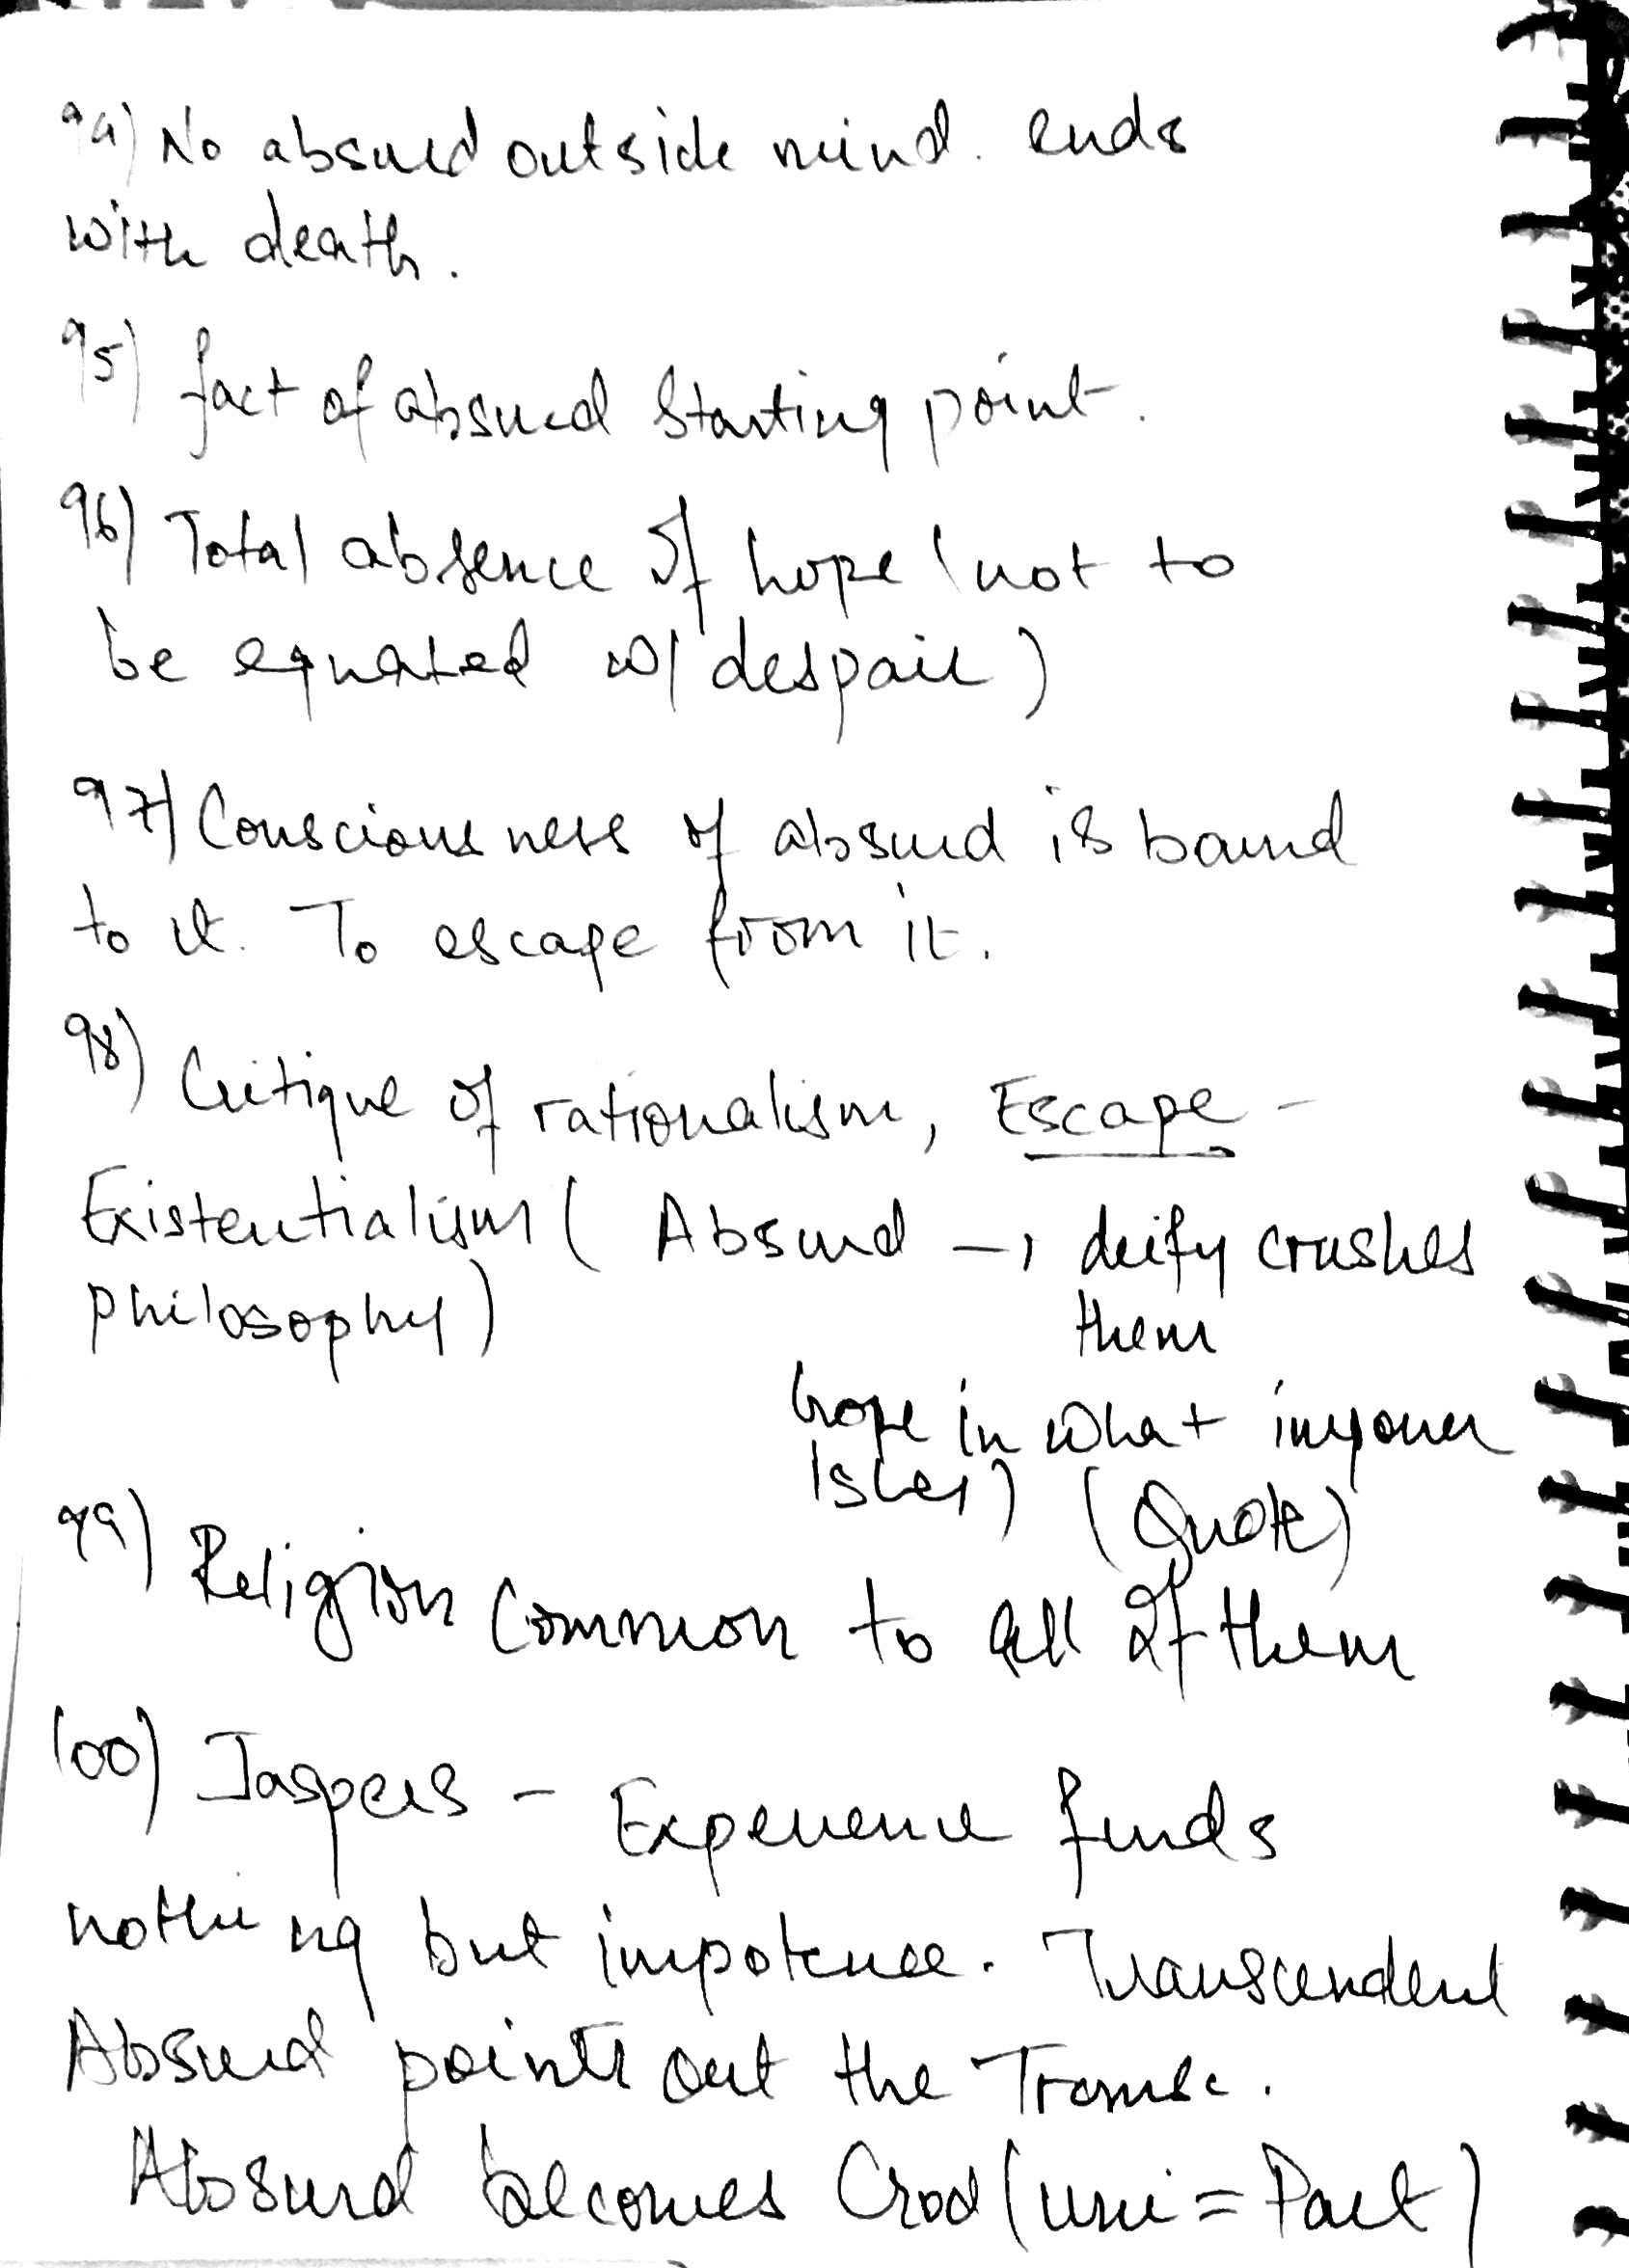 94) No absurd outside mind. ends
with death.
95) fact of absurd starting point.
96) Total absence of hope (not to
be equated w/ despair)
97) Consciousness of absurd is bound
to it. To escape from it.
98) Critique of rationalism, Escape -
Existentialism ( Absurd → deify crushes
philosophy)
them
hope in what impover
ishes) (Quote)
99) Religion common to all of them
100) Jaspers - Experience finds
nothing but impotence. Transcendent
Absurd points out the Transc.
Absurd becomes God (uni = Part)